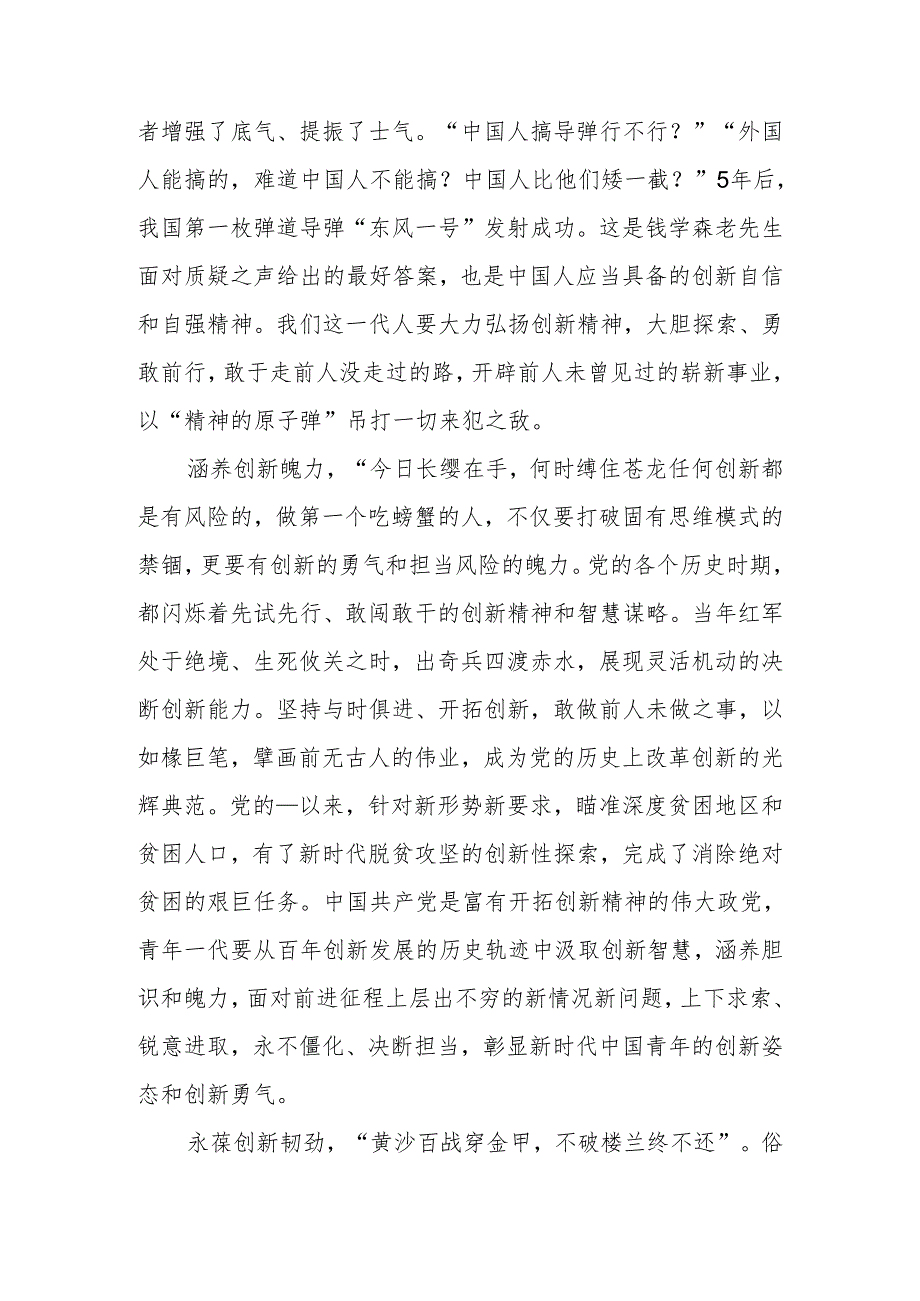 者增强了底气、提振了士气。“中国人搞导弹行不行？”“外国
人能搞的，难道中国人不能搞？中国人比他们矮一截？”5年后，
我国第一枚弹道导弹“东风一号”发射成功。这是钱学森老先生
面对质疑之声给出的最好答案，也是中国人应当具备的创新自信
和自强精神。我们这一代人要大力弘扬创新精神，大胆探索、勇
敢前行，敢于走前人没走过的路，开辟前人未曾见过的崭新事业，
以“精神的原子弹”吊打一切来犯之敌。
涵养创新魄力，“今日长缨在手，何时缚住苍龙任何创新都
是有风险的，做第一个吃螃蟹的人，不仅要打破固有思维模式的
禁锢，更要有创新的勇气和担当风险的魄力。党的各个历史时期，
都闪烁着先试先行、敢闯敢干的创新精神和智慧谋略。当年红军
处于绝境、生死攸关之时，出奇兵四渡赤水，展现灵活机动的决
断创新能力。坚持与时俱进、开拓创新，敢做前人未做之事，以
如椽巨笔，擘画前无古人的伟业，成为党的历史上改革创新的光
辉典范。党的—以来，针对新形势新要求，瞄准深度贫困地区和
贫困人口，有了新时代脱贫攻坚的创新性探索，完成了消除绝对
贫困的艰巨任务。中国共产党是富有开拓创新精神的伟大政党，
青年一代要从百年创新发展的历史轨迹中汲取创新智慧，涵养胆
识和魄力，面对前进征程上层出不穷的新情况新问题，上下求索、
锐意进取，永不僵化、决断担当，彰显新时代中国青年的创新姿
态和创新勇气。
永葆创新韧劲，“黄沙百战穿金甲，不破楼兰终不还”。俗